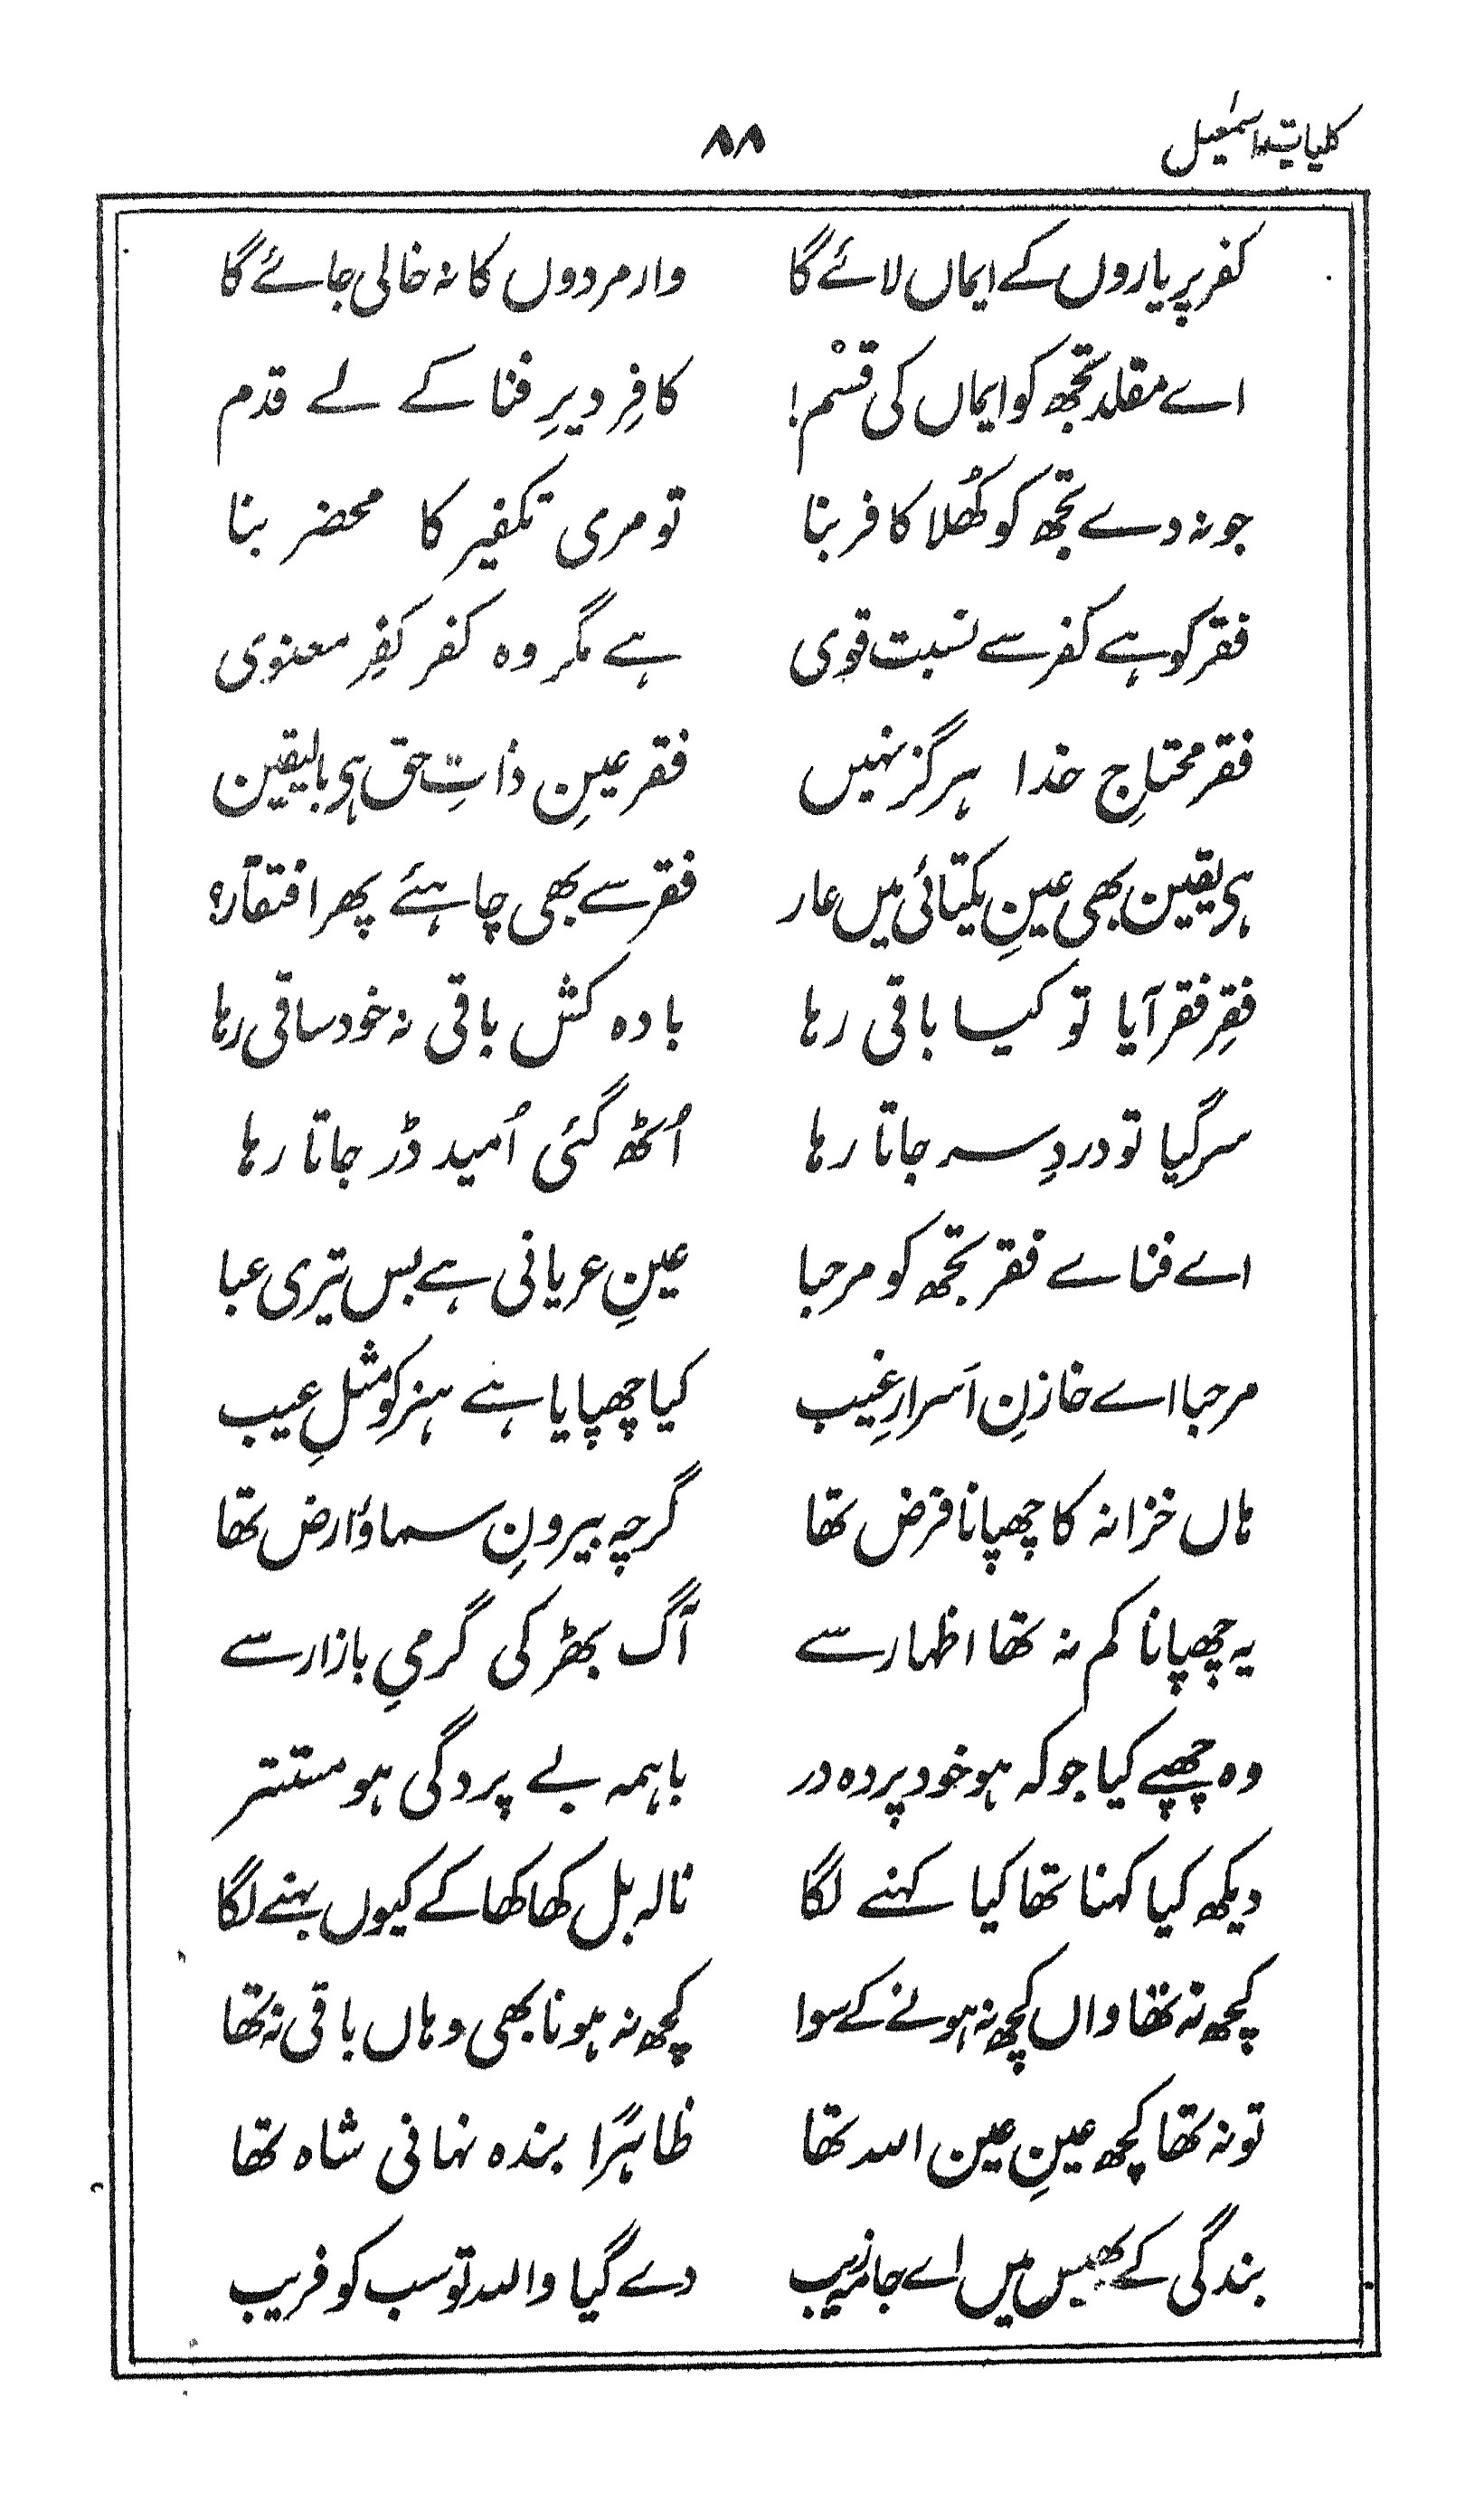 کلیات اسمٰعیل ۸۸
کفر پر یاروں کے ایماں لائے گا وار مردوں کا نہ خالی جائے گا
اے مقلد تجھ کو ایماں کی قسْم! کافِرِ دیرِ فنا کے لے قدم
جو نہ دے تجھ کو کھُلا کافر بنا تو مری تکفیر کا محضر بنا
فقر کو ہے کفر سے نسبت قوی ہے مگر وہ کفر کفرِ معنوی
فقر محتاجِ خدا ہرگز نہیں فقر عینِ ذاتِ حق ہی بالیقین
ہی یقین بھی عینِ یکتائی میں عار فقر سے بھی چاہئے پھر افتقار؟
فقرِ فقر آیا تو کیا باقی رہا بادہ کش باقی نہ خود ساقی رہا
سر گیا تو دردِ سر جاتا رہا اُٹھ گئی اُمید ڈر جاتا رہا
اے فناے فقر تجھ کو مرحبا عینِ عریانی ہے بس تیری عبا
مرحبا اے خازنِ اَسرارِ غیب کیا چھپایا ہے ہنر کو مثلِ عیب
ہاں خزانہ کا چھپانا فرض تھا گرچہ بیرونِ سما وُ ارض تھا
یہ چھپانا کم نہ تھا اظہار سے آگ بھڑکی گرمیِ بازار سے
وہ چھپے کیا جو کہ ہو خود پردہ در باہمہ بے پردگی ہو مستتر
دیکھ کیا کہنا تھا کیا کہنے لگا نالہ بل کھا کھا کے کیوں بہنے لگا
کچھ نہ تھا واں کچھ نہ ہونے کے سوا کچھ نہ ہونا بھی وہاں باقی نہ تھا
تو نہ تھا کچھ عینِ عین اللہ تھا ظاہرًا بندہ نہانی شاہ تھا
بندگی کے بھیس میں اے جامہ زیب دے گیا واللہ تو سب کو فریب